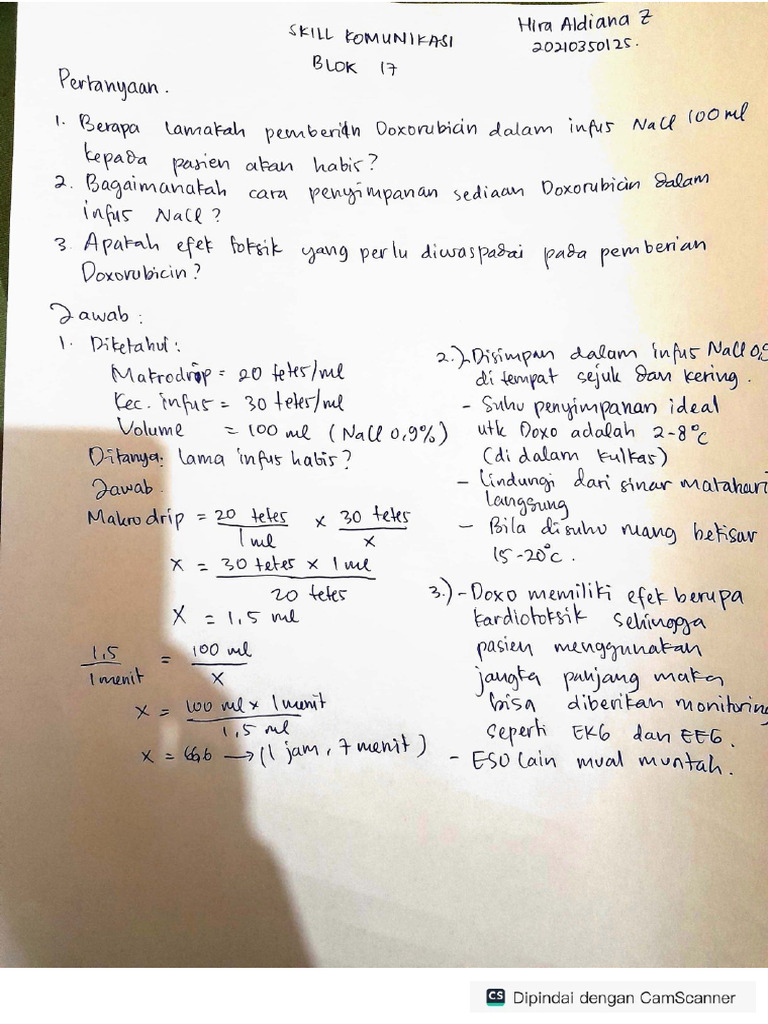 SKILL KOMUNIKASI
BLOK 17
Hira Aldiana Z
20210350125.
Pertanyaan.
1. Berapa lamakah pemberian Doxorubicin dalam infus NaCl 100 ml
kepada pasien akan habis?
2. Bagaimanakah cara penyimpanan sediaan Doxorubicin dalam
infus NaCl?
3. Apakah efek toksik yang perlu diwaspadai pada pemberian
Doxorubicin?
Jawab :
1. Diketahui :
Makrodrip = 20 tetes/ml
Kec. infus = 30 tetes/ml
Volume = 100 ml (NaCl 0,9%)
Ditanya: lama infus habis?
Jawab.
Makro drip = 20 tetes / 1 ml x 30 tetes / x
x = 30 tetes x 1 ml / 20 tetes
x = 1,5 ml
1,5 / 1 menit = 100 ml / x
x = 100 ml x 1 menit / 1,5 ml
x = 66,6 → (1 jam, 7 menit)
2.) - Disimpan dalam infus NaCl 0,9
di tempat sejuk dan kering.
- Suhu penyimpanan ideal
utk Doxo adalah 2-8°C
(di dalam kulkas)
- Lindungi dari sinar matahari
langsung
- Bila disuhu ruang bekisar
15-20°C.
3.) - Doxo memiliki efek berupa
kardiotoksik sehingga
pasien menggunakan
jangka panjang maka
bisa diberikan monitoring
seperti EKG dan EEG.
- ESO lain mual muntah.
CS Dipindai dengan CamScanner